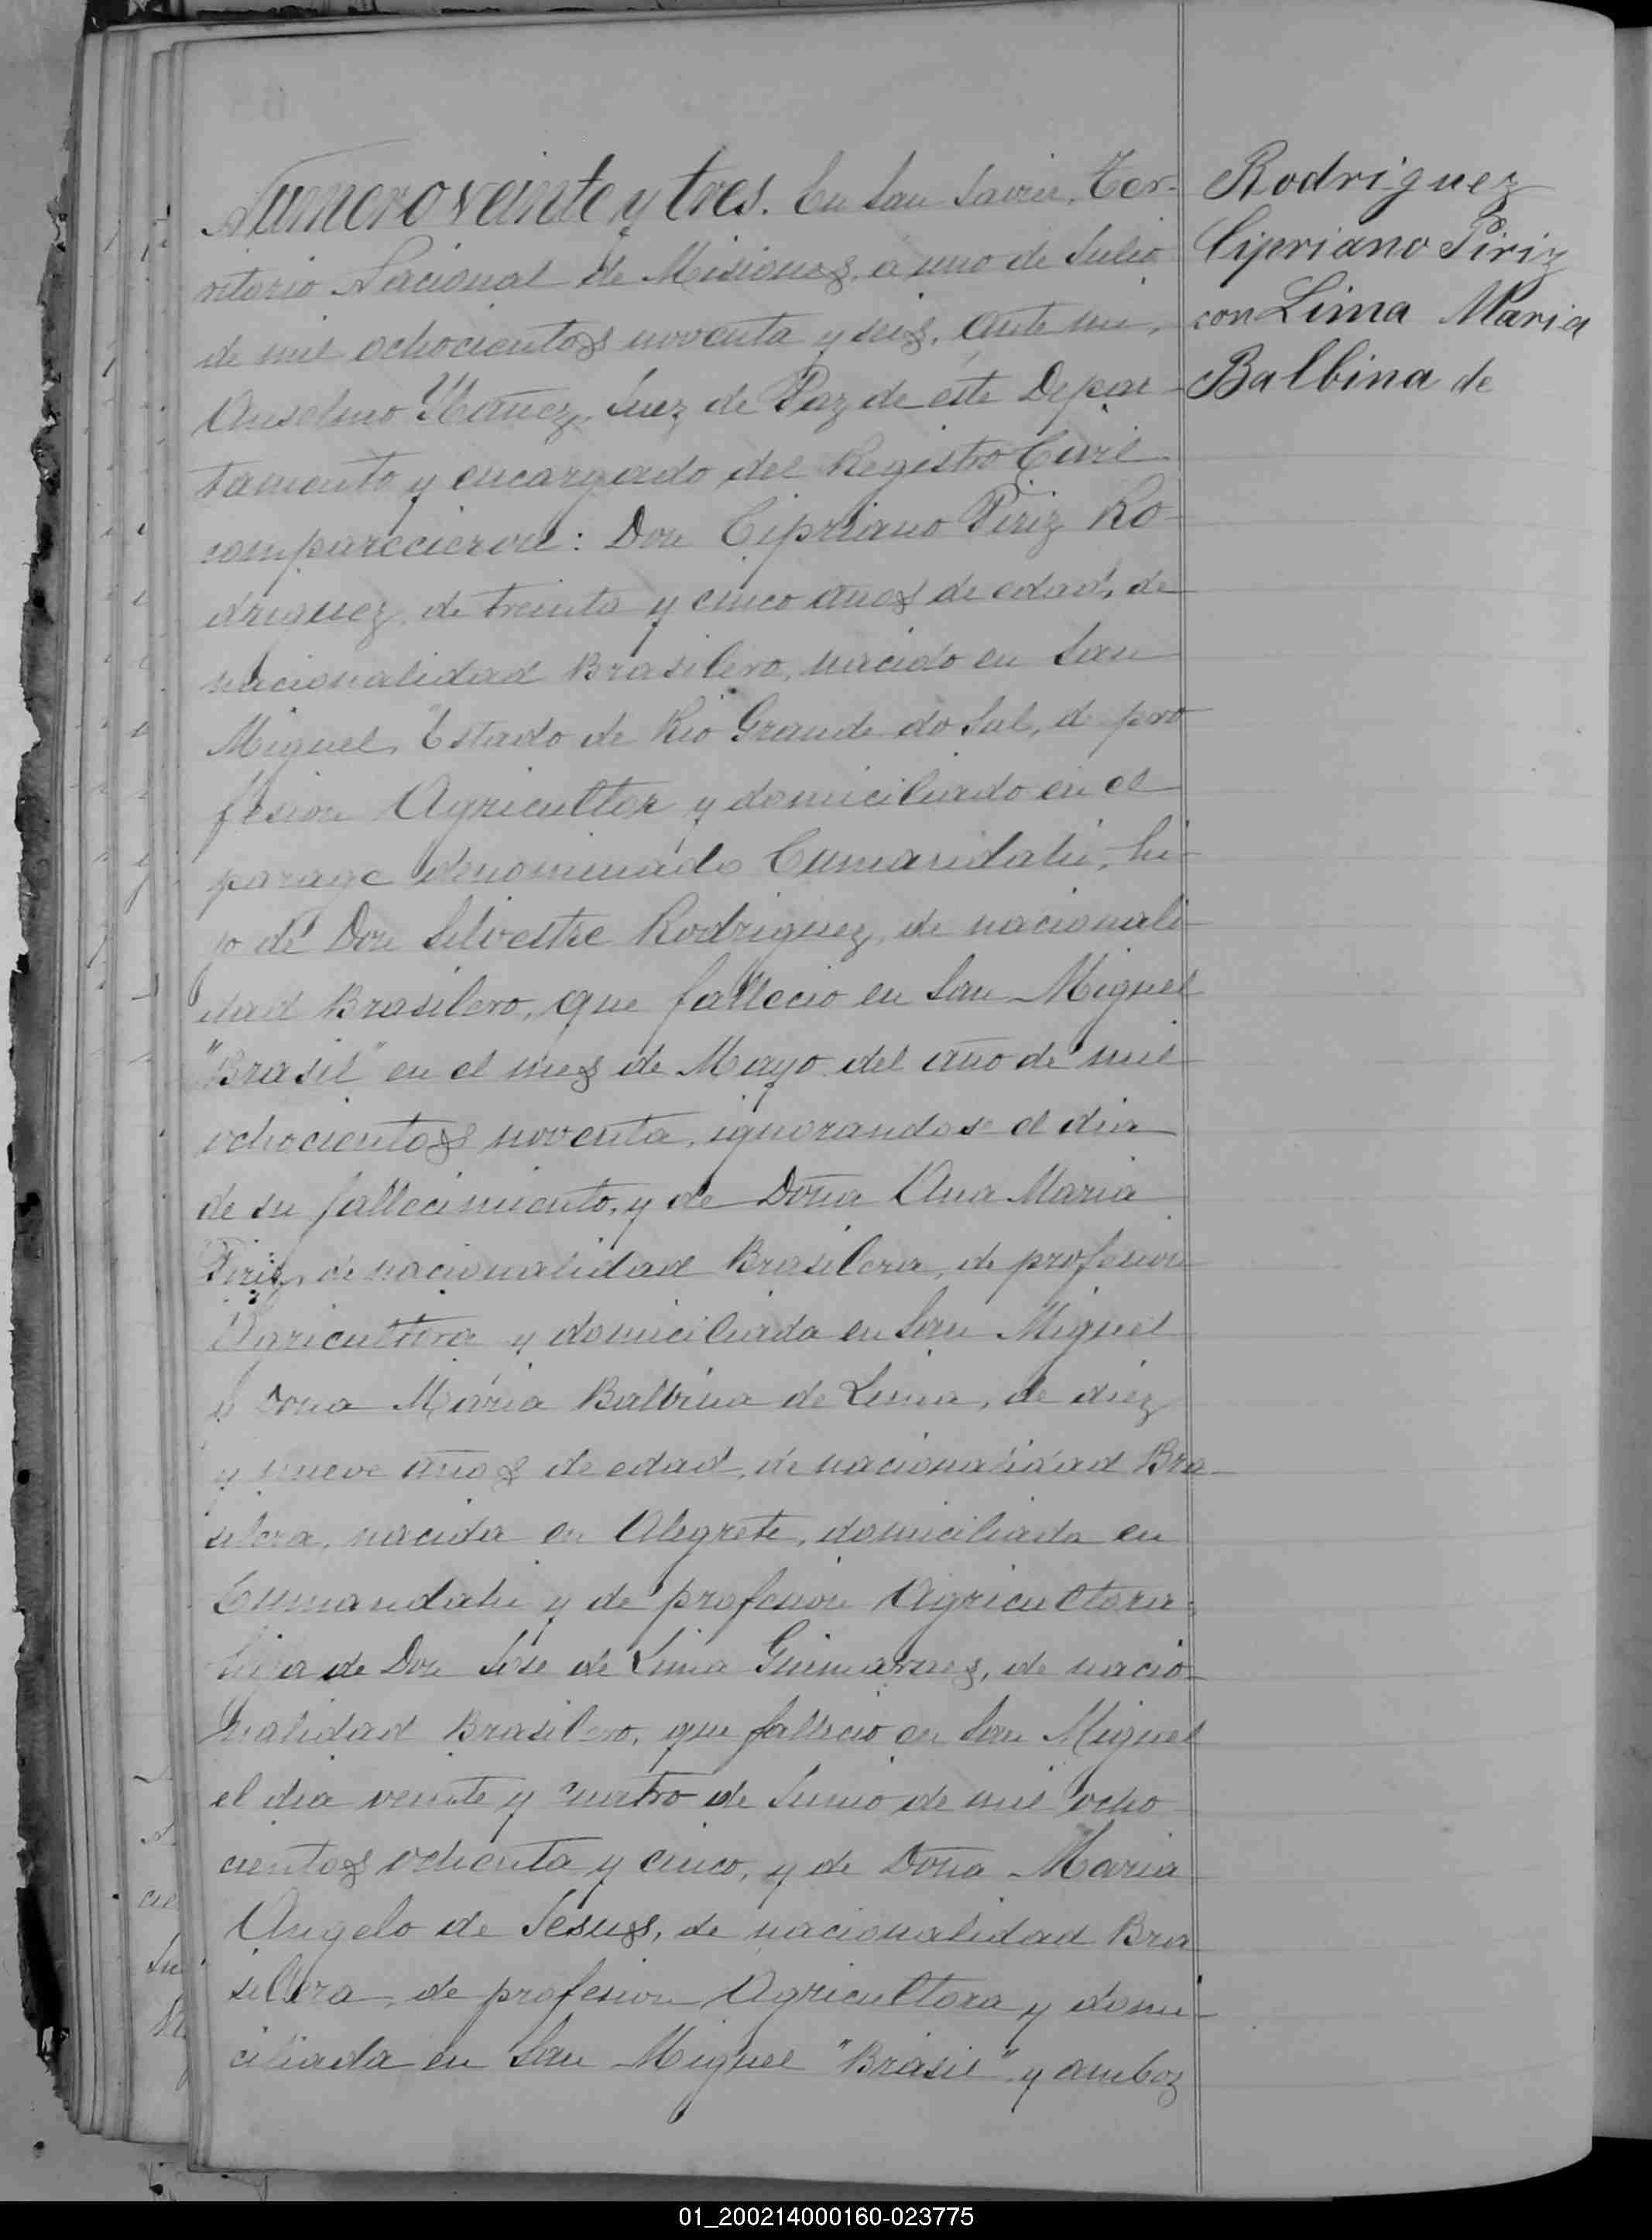 Numero veinte y tres. En San Javier, Ter-
ritorio Nacional de Misiones, á uno de Julio
de mil ochocientos noventa y seis, ante mi,
Anselmo Ybañez, Juez de Paz de éste Depar-
tamento y encargado del Registro Civil
comparecieron: Don Cipriano Piriz Ro-
driguez, de treinta y cinco años de edad, de
nacionalidad Brasilero, nacido en San
Miguel, Estado de Rio Grande do Sul, de pro
fesion Agricultor y domiciliado en el
parage denominado Cumandahi, hi-
jo de Don Silvestre Rodriguez, de nacionali-
dad Brasilero, que fallecio en San Miguel
"Brasil" en el mes de Mayo del año de mil
ochocientos noventa, ignorandose el dia
de su fallecimiento, y de Doña Ana Maria
Piriz, de nacionalidad Brasilera, de profesion
Agricultora y domiciliada en San Miguel
y Doña Maria Balbina de Lima, de diez
y nueve años de edad, de nacionalidad Bra-
silera, nacida en Alegrete, domiciliada en
Cumandahi y de profesion Agricultora,
hija de Don Jose de Lima Guimaraes, de nacio-
nalidad Brasilero, que fallecio en San Miguel
el dia veinte y cuatro de Junio de mil ocho
cientos ochenta y cinco, y de Doña Maria
Angelo de Jesus, de nacionalidad Bra
silera, de profesion Agricultora y domi-
ciliada en San Miguel "Brasil" y ambos
Rodriguez
Cipriano Piriz
con Lima Maria
Balbina de
01_200214000160-023775